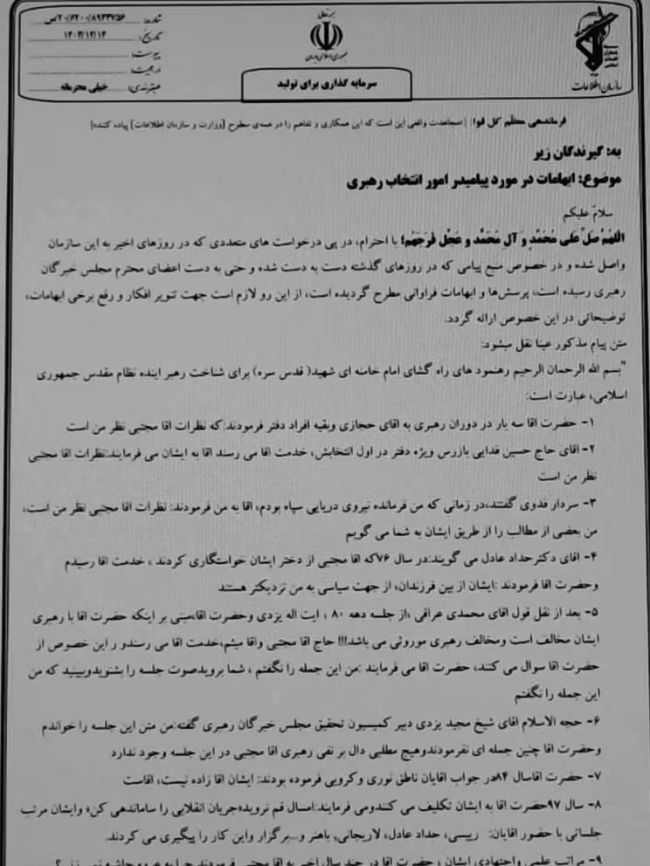 شماره: ۲۰/۶۲۰۰/۸۹۴۴۷۵۶/ص
تاریخ: ۱۴۰۴/۱۲/۱۴
پیوست:
طبقه‌بندی: خیلی محرمانه
جمهوری اسلامی ایران
سرمایه گذاری برای تولید
سازمان اطلاعات
فرماندهی معظم کل قوا: | مجاهدت واقعی این است که این همکاری و تفاهم را در همه‌ی سطوح [وزارت و سازمان اطلاعات] پیاده کنند|
به: گیرندگان زیر
موضوع: ابهامات در مورد پیامیدر امور انتخاب رهبری
سلامٌ علیکم
اللهُمَّ صَلِّ عَلی مُحَمَّدٍ وَ آلِ مُحَمَّدٍ و عَجِّل فَرَجَهُم؛ با احترام، در پی درخواست های متعددی که در روزهای اخیر به این سازمان
واصل شده و در خصوص منبع پیامی که در روزهای گذشته دست به دست شده و حتی به دست اعضای محترم مجلس خبرگان
رهبری رسیده است، پرسش‌ها و ابهامات فراوانی مطرح گردیده است، از این رو لازم است جهت تنویر افکار و رفع برخی ابهامات،
توضیحاتی در این خصوص ارائه گردد.
متن پیام مذکور عینا نقل میشود:
"بسم الله الرحمان الرحیم رهنمود های راه گشای امام خامنه ای شهید( قدس سره) برای شناخت رهبر اینده نظام مقدس جمهوری
اسلامی، عبارت است:
۱- حضرت اقا سه بار در دوران رهبری به اقای حجازی وبقیه افراد دفتر فرمودند:که نظرات اقا مجتبی نظر من است
۲- اقای حاج حسین فدایی بازرس ویژه دفتر در اول انتخابش، خدمت اقا می رسند اقا به ایشان می فرمایند:نظرات اقا مجتبی
نظر من است
۳- سردار فدوی گفتند،در زمانی که من فرمانده نیروی دریایی سپاه بودم، اقا به من فرمودند: نظرات اقا مجتبی نظر من است،
من بعضی از مطالب را از طریق ایشان به شما می گویم
۴- اقای دکترحداد عادل می گویند:در سال ۷۶که اقا مجتبی از دختر ایشان خواستگاری کردند ، خدمت اقا رسیدم
وحضرت اقا فرمودند :ایشان از بین فرزندان، از جهت سیاسی به من نزدیکتر هستند
۵- بعد از نقل قول اقای محمدی عراقی ،از جلسه دهه ۸۰ ، ایت اله یزدی وحضرت اقا،مبنی بر اینکه حضرت اقا با رهبری
ایشان مخالف است ومخالف رهبری موروثی می باشد!!! حاج اقا مجتبی واقا میثم،خدمت اقا می رسندو ر این خصوص از
حضرت اقا سوال می کنند، حضرت اقا می فرمایند :من این جمله را نگفتم ، شما برویدصوت جلسه را بشنویدوببینید که من
این جمله را نگفتم
۶- حجه الاسلام اقای شیخ مجید یزدی دبیر کمیسیون تحقیق مجلس خبرگان رهبری گفته:من متن این جلسه را خواندم
وحضرت اقا چنین جمله ای نفرمودندوهیچ مطلبی دال بر نفی رهبری اقا مجتبی در این جلسه وجود ندارد
۷- حضرت اقاسال ۸۴در جواب اقایان ناطق نوری وکروبی فرموده بودند: ایشان اقا زاده نیست، اقاست
۸- سال ۹۷حضرت اقا به ایشان تکلیف می کنندومی فرمایند:امسال قم نروید«جریان انقلابی را ساماندهی کن» وایشان مرتب
جلساتی با حضور اقایان: رییسی، حداد عادل، لاریجانی، باهنر و...برگزار واین کار را پیگیری می کردند.
۹- مراتب علمی واجتهادی ایشان ، حضرت اقا در چند سال اخیر به اقا مجتبی فرمودند